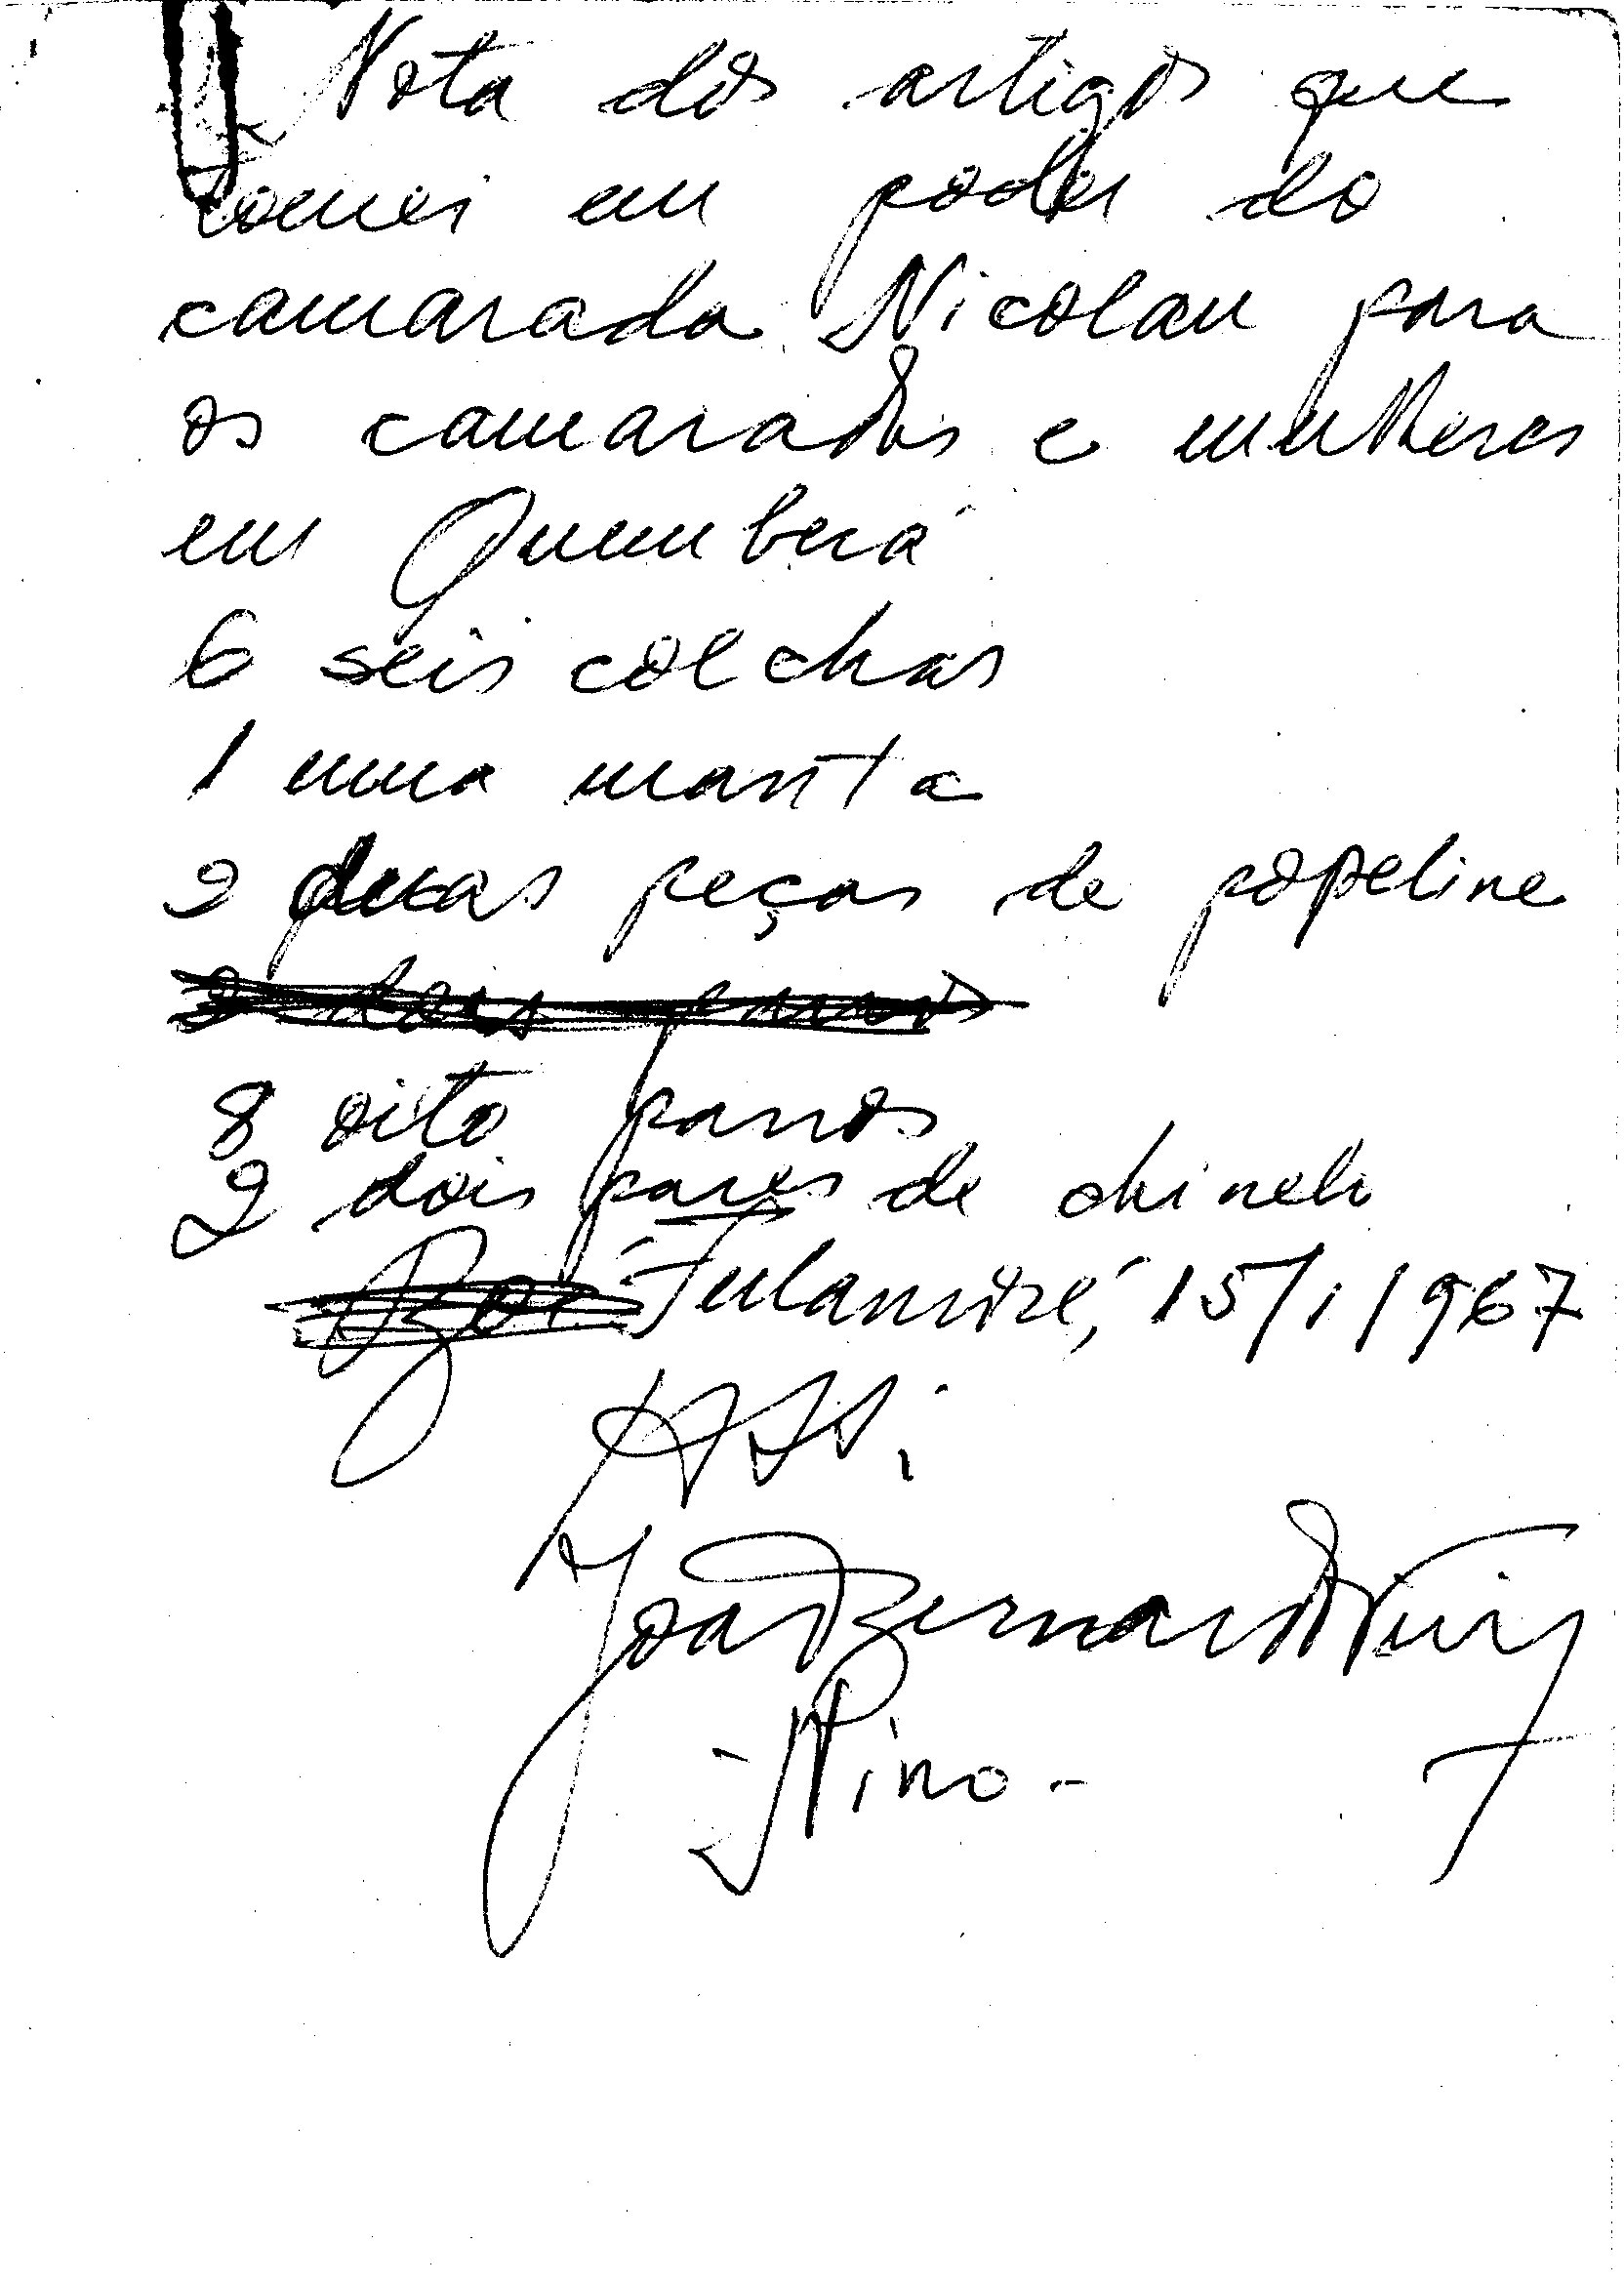 Nota dos artigos que
tomei em poder do
camarada Nicolau para
os camaradas e mulheres
em Quemberá
6 seis colchas
1 uma manta
2 duas peças de popeline
2 dois panos
8 oito panos
2 dois pares de chinelo
Fulamoré, 15/1/1967
João Bernardo Vieira
- Nino -